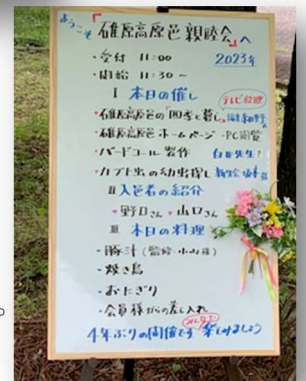 ようこそ『碓原高原邑親睦会』へ
・受付 11:00 2023年
・開始 11:30～
Ⅰ 本日の催し
テレビ放映
・碓原高原邑の「四季と暮し」
・碓原高原邑 ホームページ - PC閲覧
・バードコール製作 白田先生
・カブト虫の幼虫探し
Ⅱ 入邑者の紹介
・野口さん・山口さん
Ⅲ 本日の料理
・豚汁(監修・小山様)
・焼き鳥
・おにぎり
・会員様からの差し入れ
4年ぶりの開催です みんなで 楽しみましょう